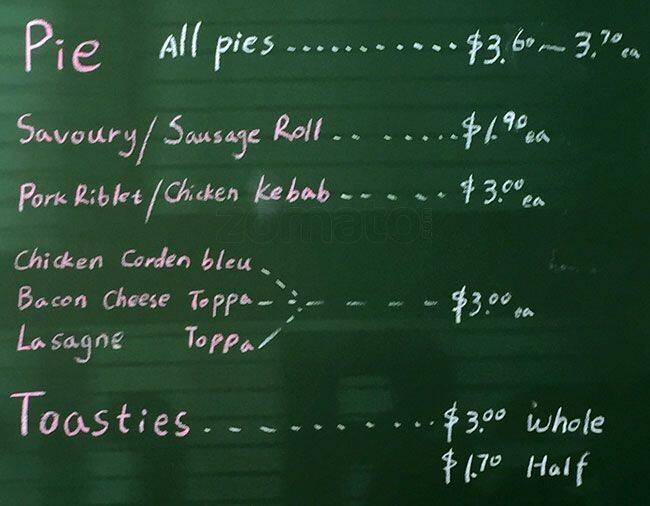 Pie All pies ........... $3.60 ~ 3.70 ea
Savoury/Sausage Roll .. ...... $1.90 ea
Pork Riblet/Chicken Kebab - - - - - - $3.00 ea
zomato
Chicken Corden bleu
Bacon Cheese Toppa - - - - - - $3.00 ea
Lasagne Toppa
Toasties ............ $3.00 whole
$1.70 Half